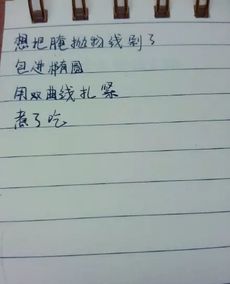 想把腌抛物线剁了
包进椭圆
用双曲线扎紧
煮了吃